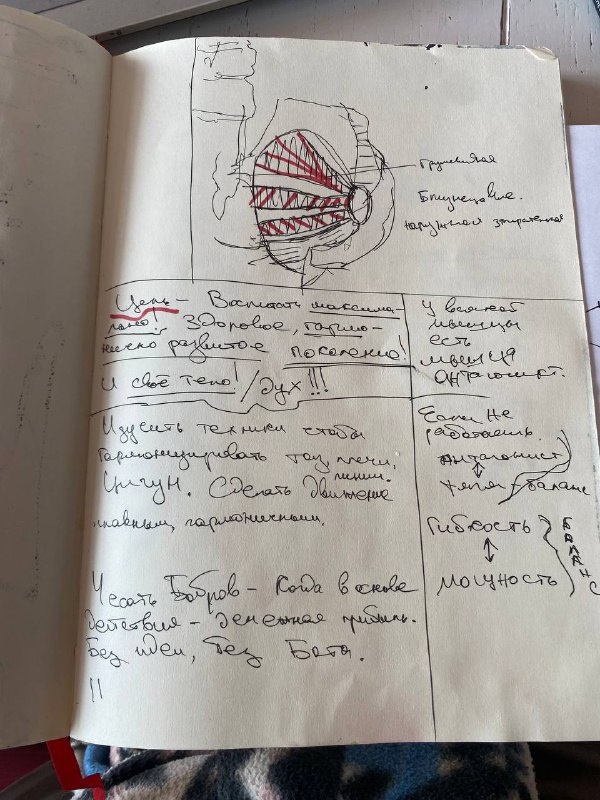 Грушевидная
Близнецовые.
наружная запирательная
Цель - Воспитать максима-
льно! Здоровое, гармо-
нично развитое поколение!
И своё тело! / Дух !!!
У всякой
мышцы
есть
мышца
антагонист.
Изучить техники чтобы
гармонизировать таз, плечи,
Цигун. Сделать движение
плавным, гармоничным.
Если не
работаешь
антагонист
баланс
Гибкость
Мощность
БАЛАНС
Чесать Бобров - Когда в основе
действия - денежная прибыль.
Без идеи, без Бога.